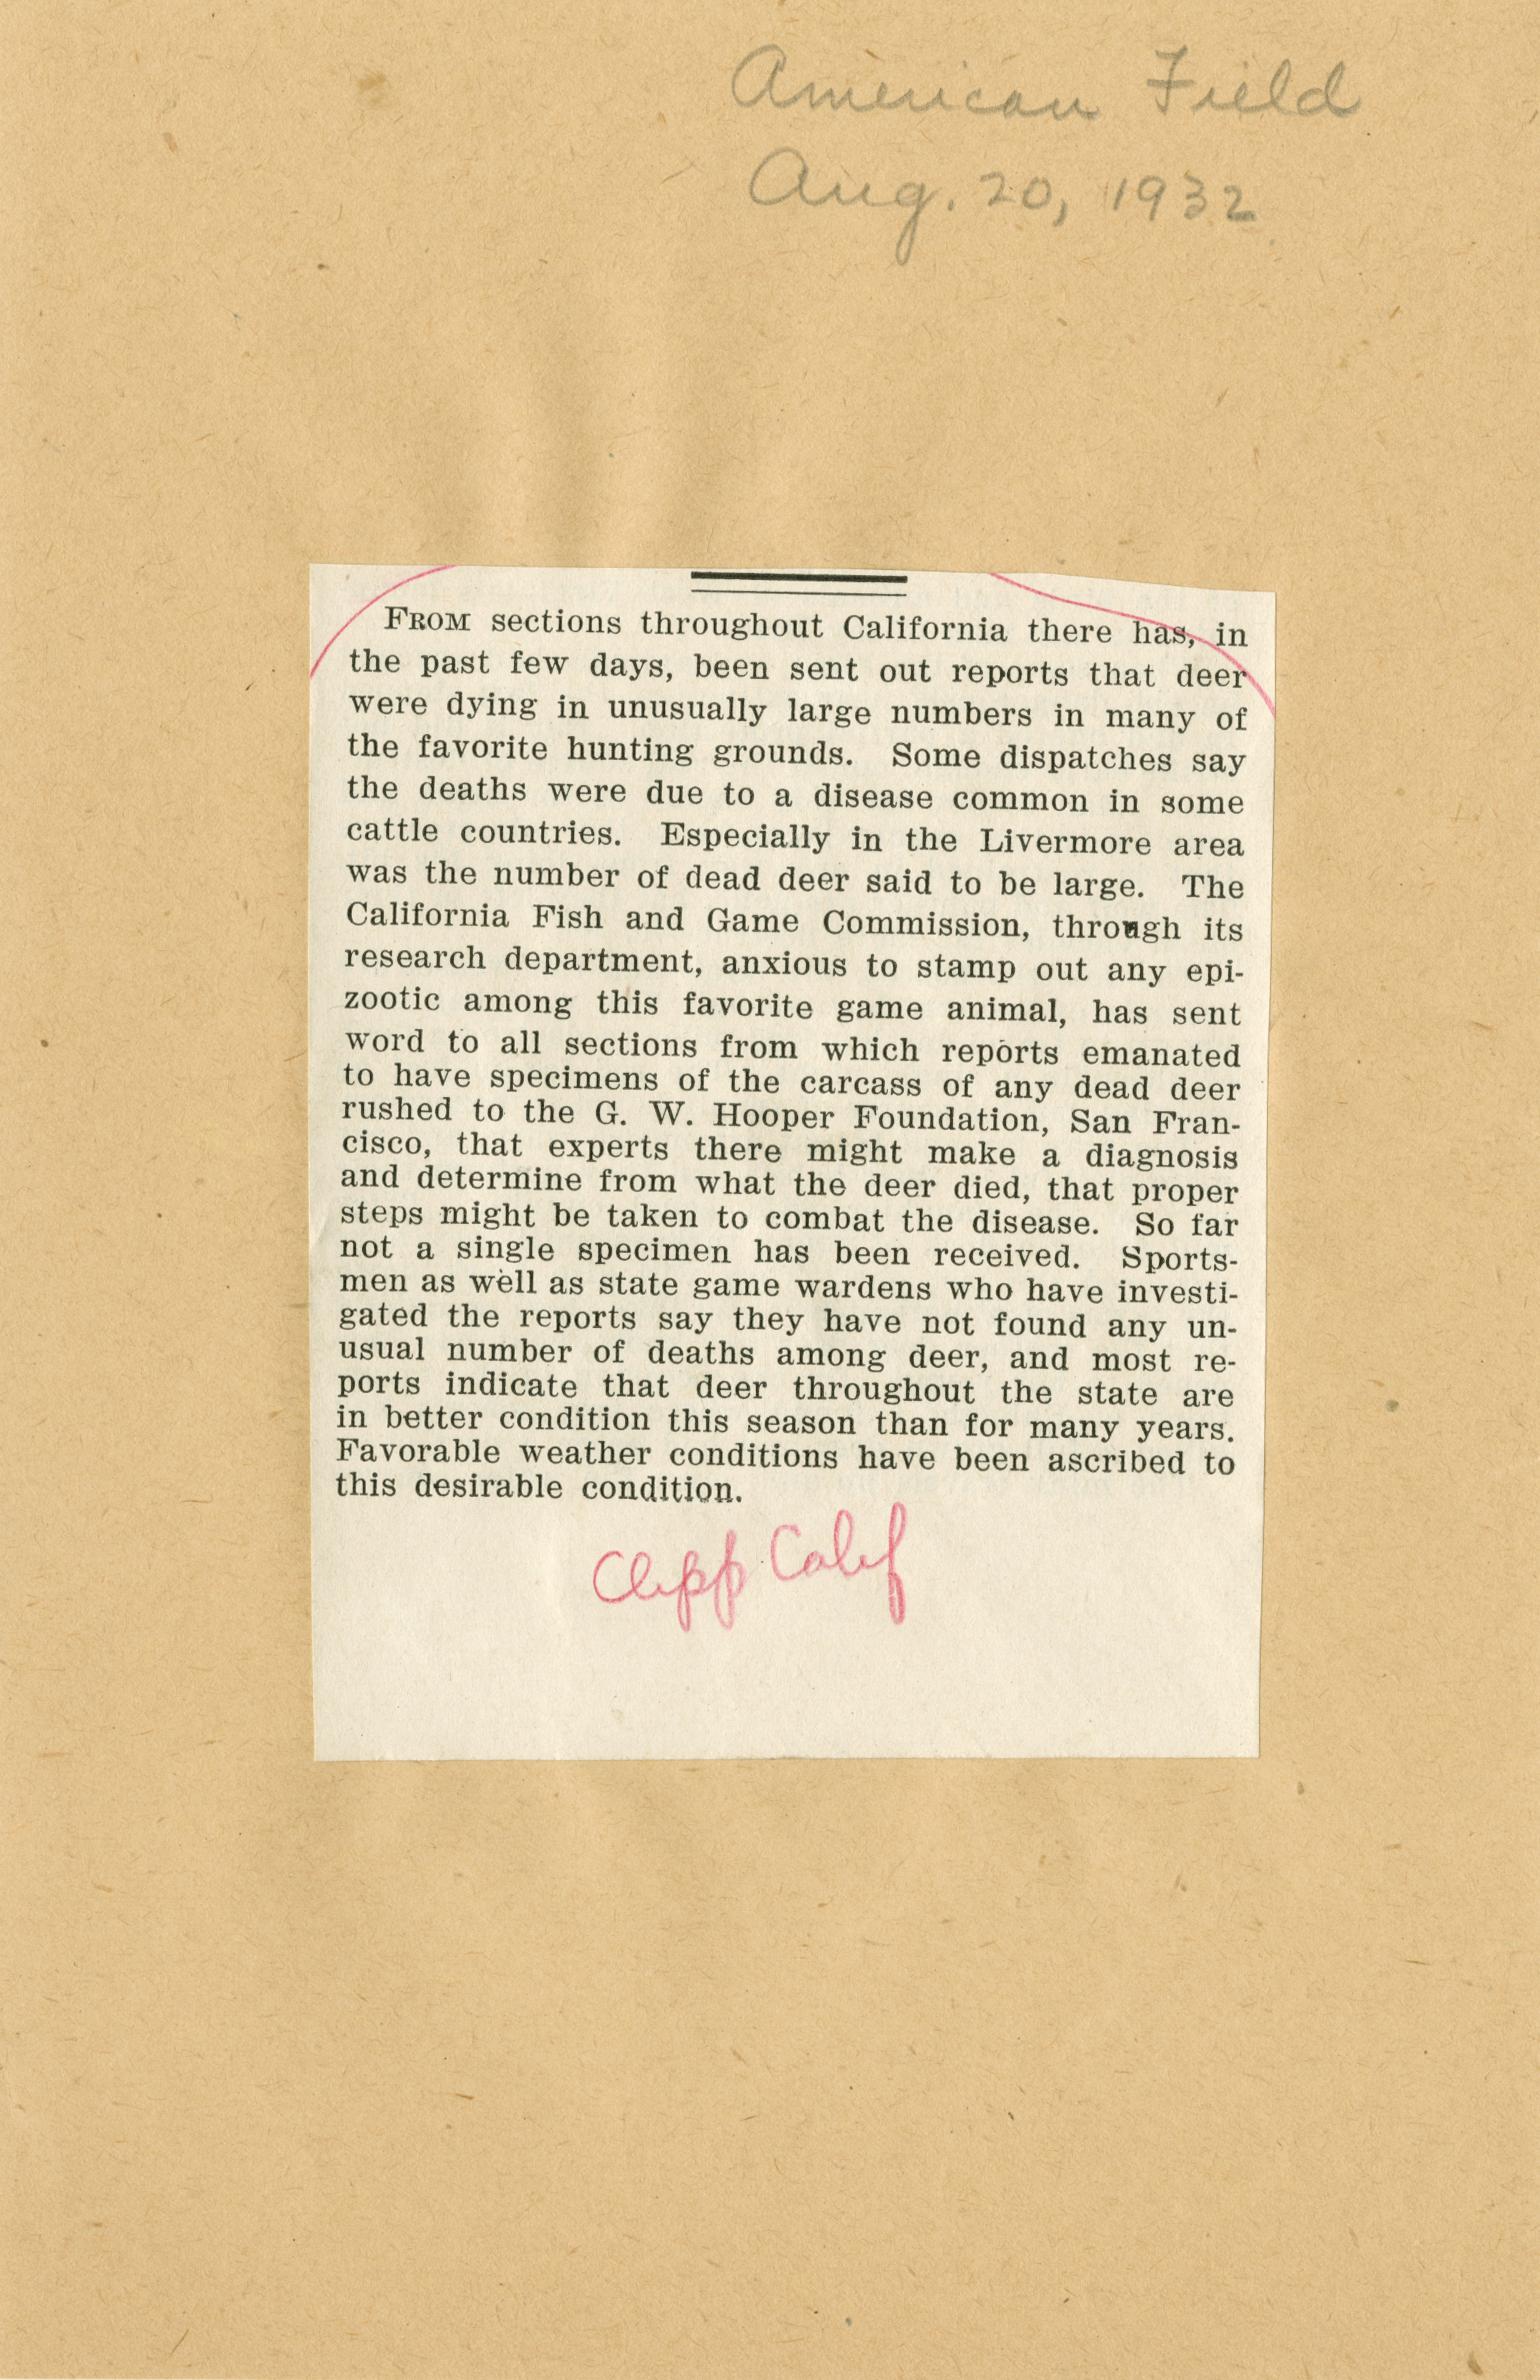 American Field
Aug. 20, 1932
FROM sections throughout California there has, in
the past few days, been sent out reports that deer
were dying in unusually large numbers in many of
the favorite hunting grounds. Some dispatches say
the deaths were due to a disease common in some
cattle countries. Especially in the Livermore area
was the number of dead deer said to be large. The
California Fish and Game Commission, through its
research department, anxious to stamp out any epi-
zootic among this favorite game animal, has sent
word to all sections from which reports emanated
to have specimens of the carcass of any dead deer
rushed to the G. W. Hooper Foundation, San Fran-
cisco, that experts there might make a diagnosis
and determine from what the deer died, that proper
steps might be taken to combat the disease. So far
not a single specimen has been received. Sports-
men as well as state game wardens who have investi-
gated the reports say they have not found any un-
usual number of deaths among deer, and most re-
ports indicate that deer throughout the state are
in better condition this season than for many years.
Favorable weather conditions have been ascribed to
this desirable condition.
Clipp Calif